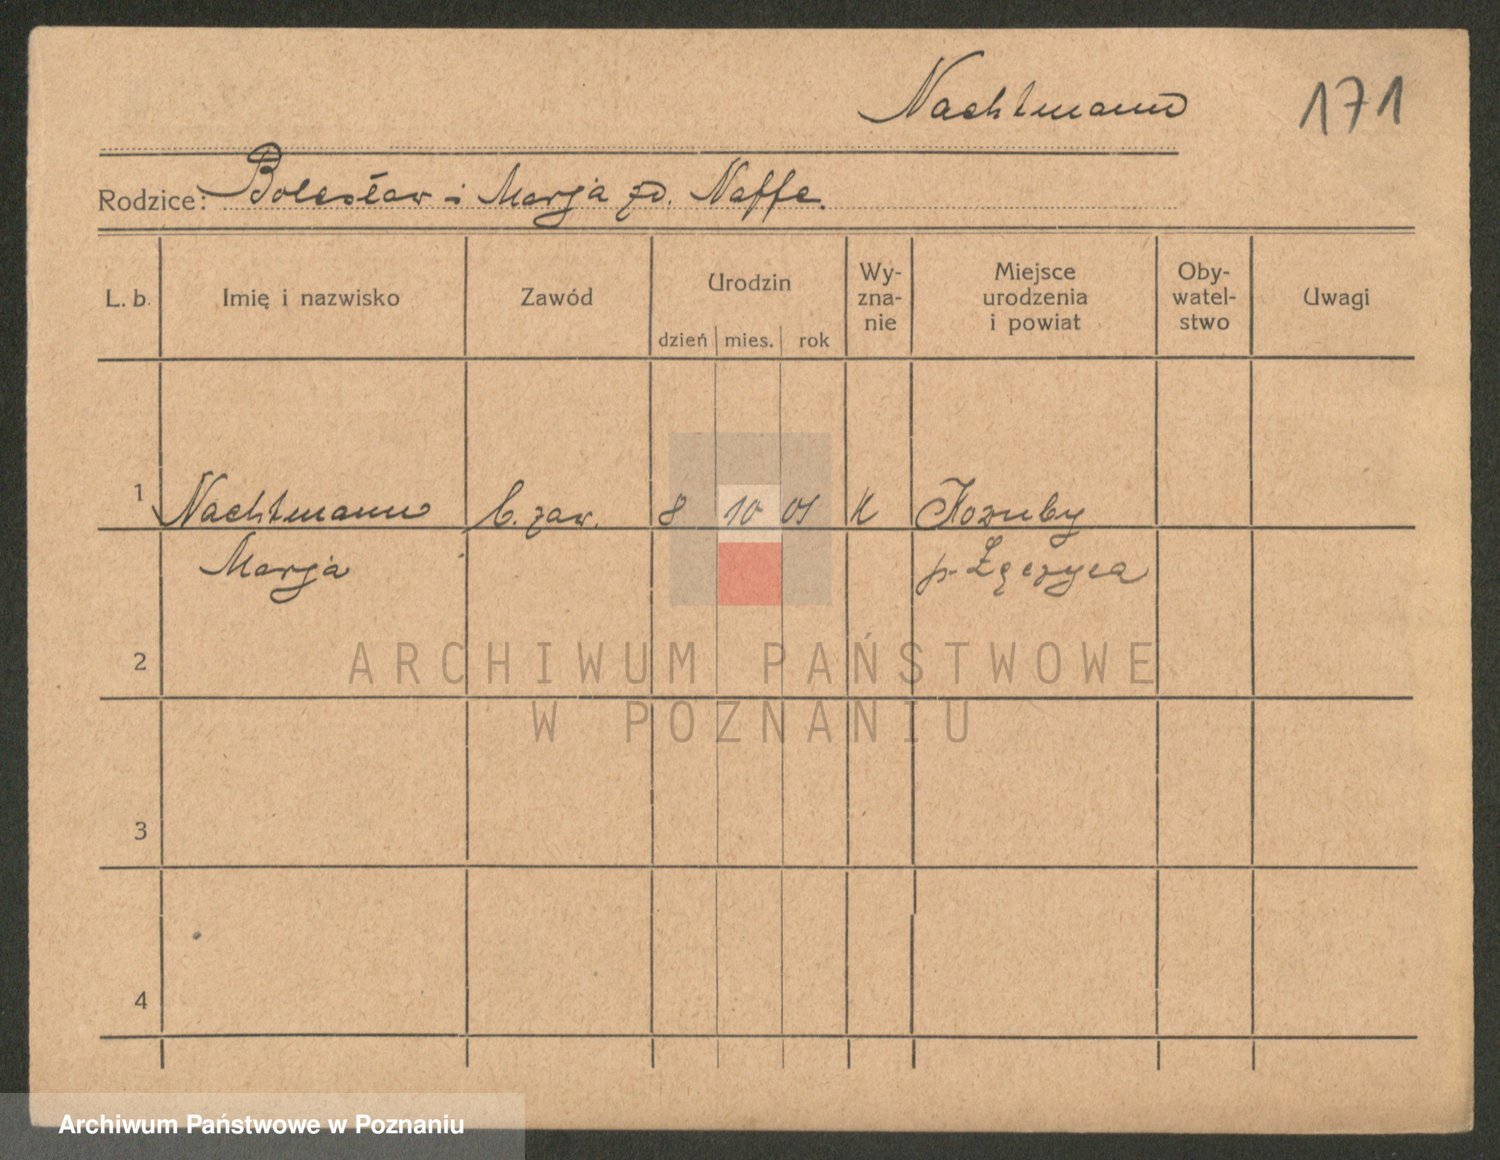 Nachtmann 171
Rodzice: Bolesław i Marja zd. Naffe.
L. b. Imię i nazwisko Zawód Urodzin dzień mies. rok Wy-zna-nie Miejsce urodzenia i powiat Oby-watel-stwo Uwagi
1 Nachtmann b. zaw. 8 10 01 K
Marja p. Łęczyca
2
ARCHIWUM PAŃSTWOWE
W POZNANIU
3
4
Archiwum Państwowe w Poznaniu